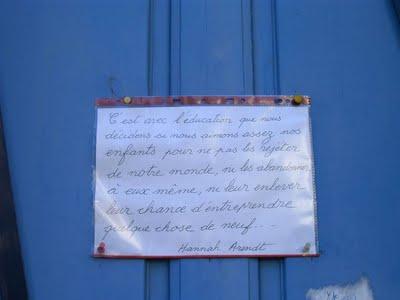 C'est avec l'éducation que nous
décidons si nous aimons assez nos
enfants pour ne pas les rejeter
de notre monde, ni les abandonner
à eux même, ni leur enlever
leur chance d'entreprendre
quelque chose de neuf...
Hannah Arendt